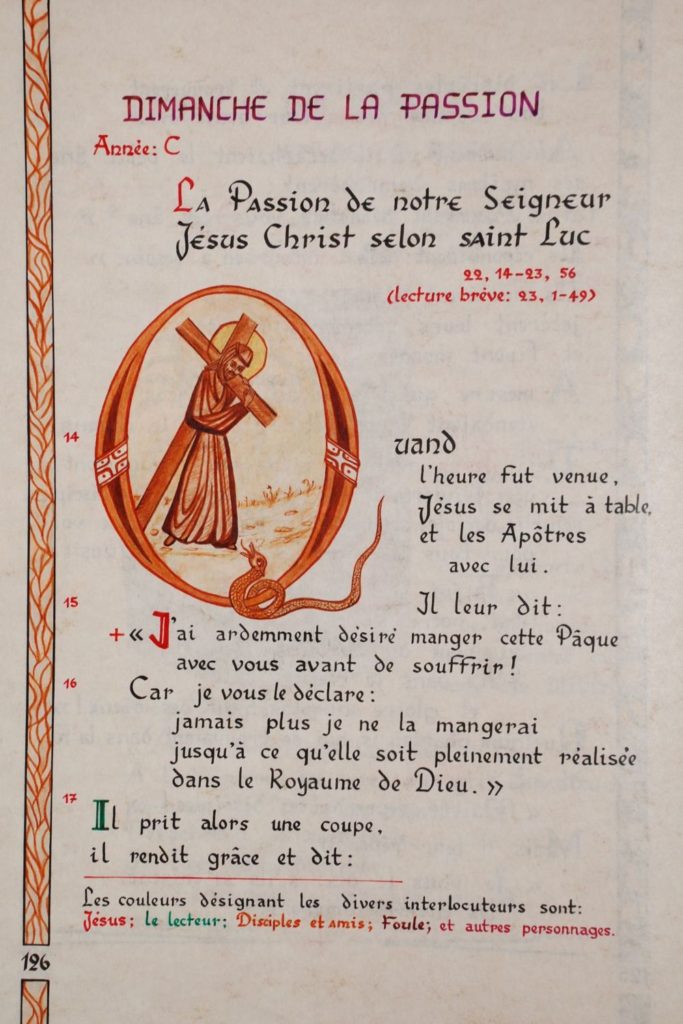 DIMANCHE DE LA PASSION
Année: C
La Passion de notre Seigneur
Jésus Christ selon saint Luc
22, 14-23, 56
(lecture brève: 23, 1-49)
14
Quand
l'heure fut venue,
Jésus se mit à table,
et les Apôtres
avec lui.
15
Il leur dit:
+ « J'ai ardemment désiré manger cette Pâque
avec vous avant de souffrir !
16
Car je vous le déclare:
jamais plus je ne la mangerai
jusqu'à ce qu'elle soit pleinement réalisée
dans le Royaume de Dieu. »
17
Il prit alors une coupe,
il rendit grâce et dit:
Les couleurs désignant les divers interlocuteurs sont:
Jésus; le lecteur; Disciples et amis; Foule; et autres personnages.
126